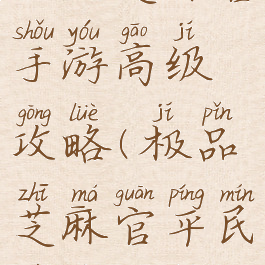 shǒu yóu gāo jí
手游高级
gōng lüè jí pǐn
攻略(极品
zhī má guān píng mín
芝麻官平民